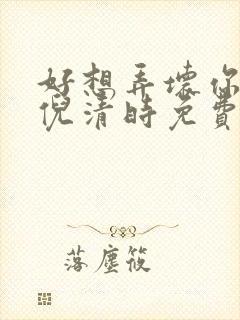 好想弄壞你
倪清時免費
落塵筱